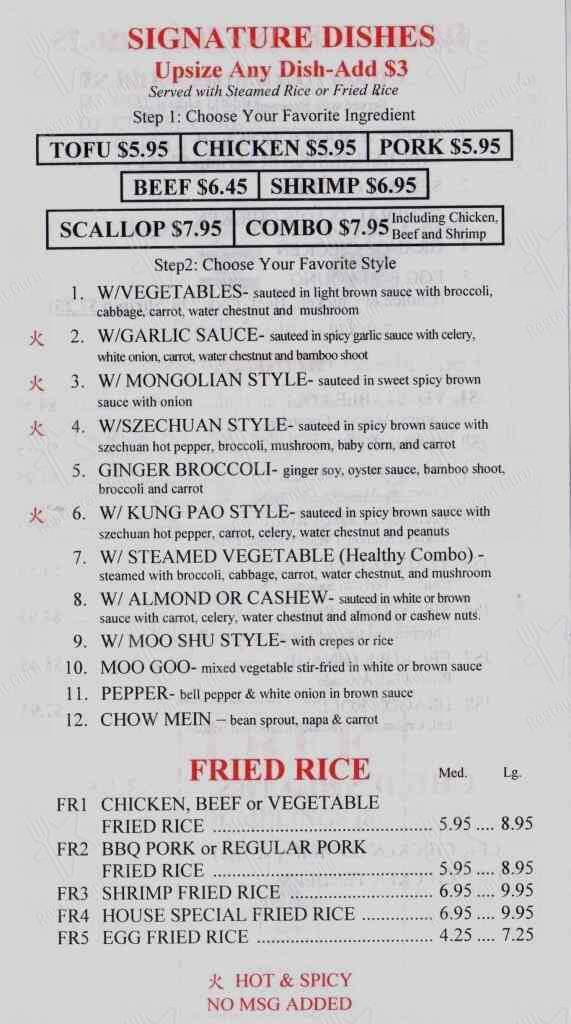 SIGNATURE DISHES
Upsize Any Dish-Add $3
Served with Steamed Rice or Fried Rice
Step 1: Choose Your Favorite Ingredient
TOFU $5.95 CHICKEN $5.95 PORK $5.95
BEEF $6.45 SHRIMP $6.95
SCALLOP $7.95 COMBO $7.95 Including Chicken,
Beef and Shrimp
Step2: Choose Your Favorite Style
1. W/VEGETABLES- sauteed in light brown sauce with broccoli,
cabbage, carrot, water chestnut and mushroom
火 2. W/GARLIC SAUCE- sauteed in spicy garlic sauce with celery,
white onion, carrot, water chestnut and bamboo shoot
火 3. W/ MONGOLIAN STYLE- sauteed in sweet spicy brown
sauce with onion
火 4. W/SZECHUAN STYLE- sauteed in spicy brown sauce with
szechuan hot pepper, broccoli, mushroom, baby corn, and carrot
5. GINGER BROCCOLI- ginger soy, oyster sauce, bamboo shoot,
broccoli and carrot
火 6. W/ KUNG PAO STYLE- sauteed in spicy brown sauce with
szechuan hot pepper, carrot, celery, water chestnut and peanuts
7. W/ STEAMED VEGETABLE (Healthy Combo) -
steamed with broccoli, cabbage, carrot, water chestnut, and mushroom
8. W/ ALMOND OR CASHEW- sauteed in white or brown
sauce with carrot, celery, water chestnut and almond or cashew nuts.
9. W/ MOO SHU STYLE- with crepes or rice
10. MOO GOO- mixed vegetable stir-fried in white or brown sauce
11. PEPPER- bell pepper & white onion in brown sauce
12. CHOW MEIN – bean sprout, napa & carrot
FRIED RICE Med. Lg.
FR1 CHICKEN, BEEF or VEGETABLE
FRIED RICE ................................ 5.95 .... 8.95
FR2 BBQ PORK or REGULAR PORK
FRIED RICE ................................ 5.95 .... 8.95
FR3 SHRIMP FRIED RICE ...................... 6.95 .... 9.95
FR4 HOUSE SPECIAL FRIED RICE ............. 6.95 .... 9.95
FR5 EGG FRIED RICE .......................... 4.25 .... 7.25
火 HOT & SPICY
NO MSG ADDED